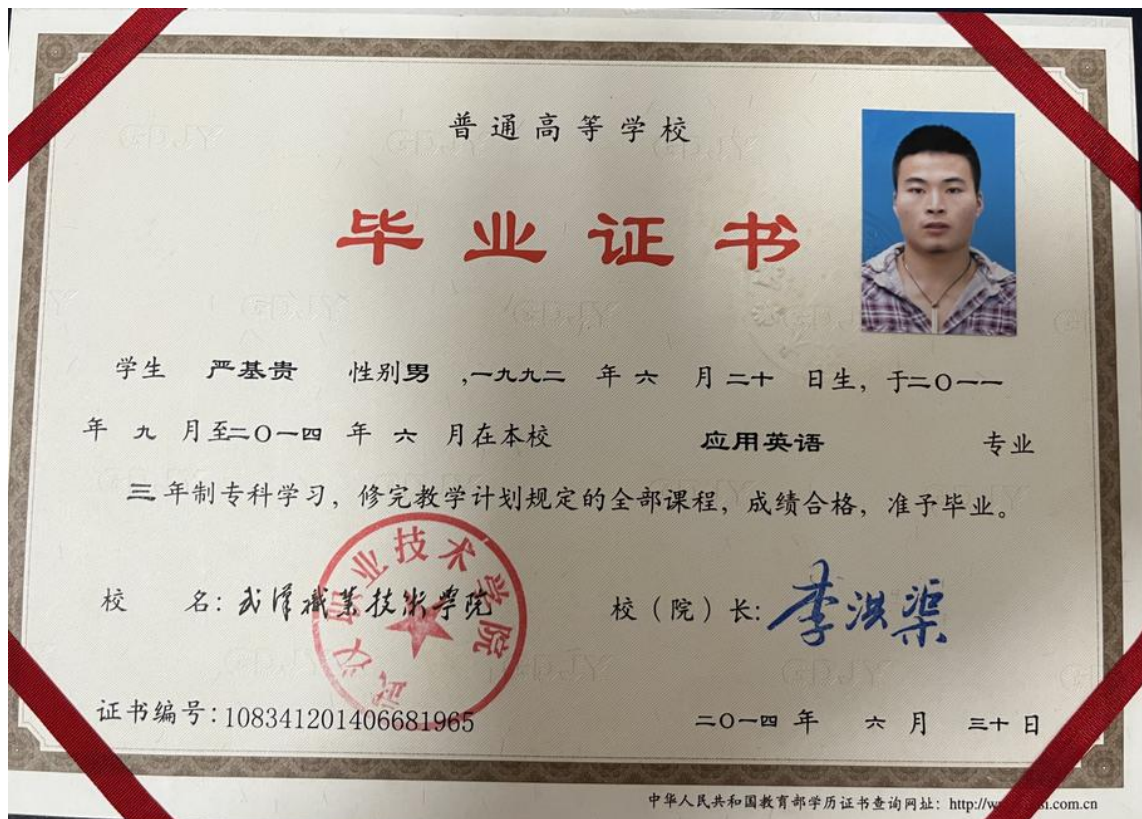 普通高等学校
毕业证书
学生 严基贵 性别男 ,一九九二 年 六 月二十 日生，于二〇一一
年 九 月至二〇一四 年 六 月在本校 应用英语 专业
三年制专科学习，修完教学计划规定的全部课程，成绩合格，准予毕业。
武汉职业技术学院
校 名：武漢職業技術學院 校（院）长：李洪渠
证书编号：108341201406681965 二〇一四 年 六 月 三十 日
中华人民共和国教育部学历证书查询网址：http://w si.com.cn